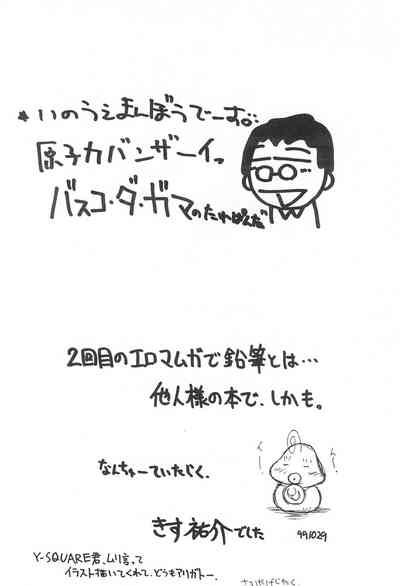 *いのうえまんぼうでーす。
原子力バンザーイっ
バスコ・ダ・ガマのたれぱんだ
2回目のエロマムガで鉛筆とは…
他人様の本で、しかも。
なんちゅーていたじく。
きす祐介でした
991029
Y-SQUARE君、ムリ言って
イラスト描いてくれて、どうもアリガトー。